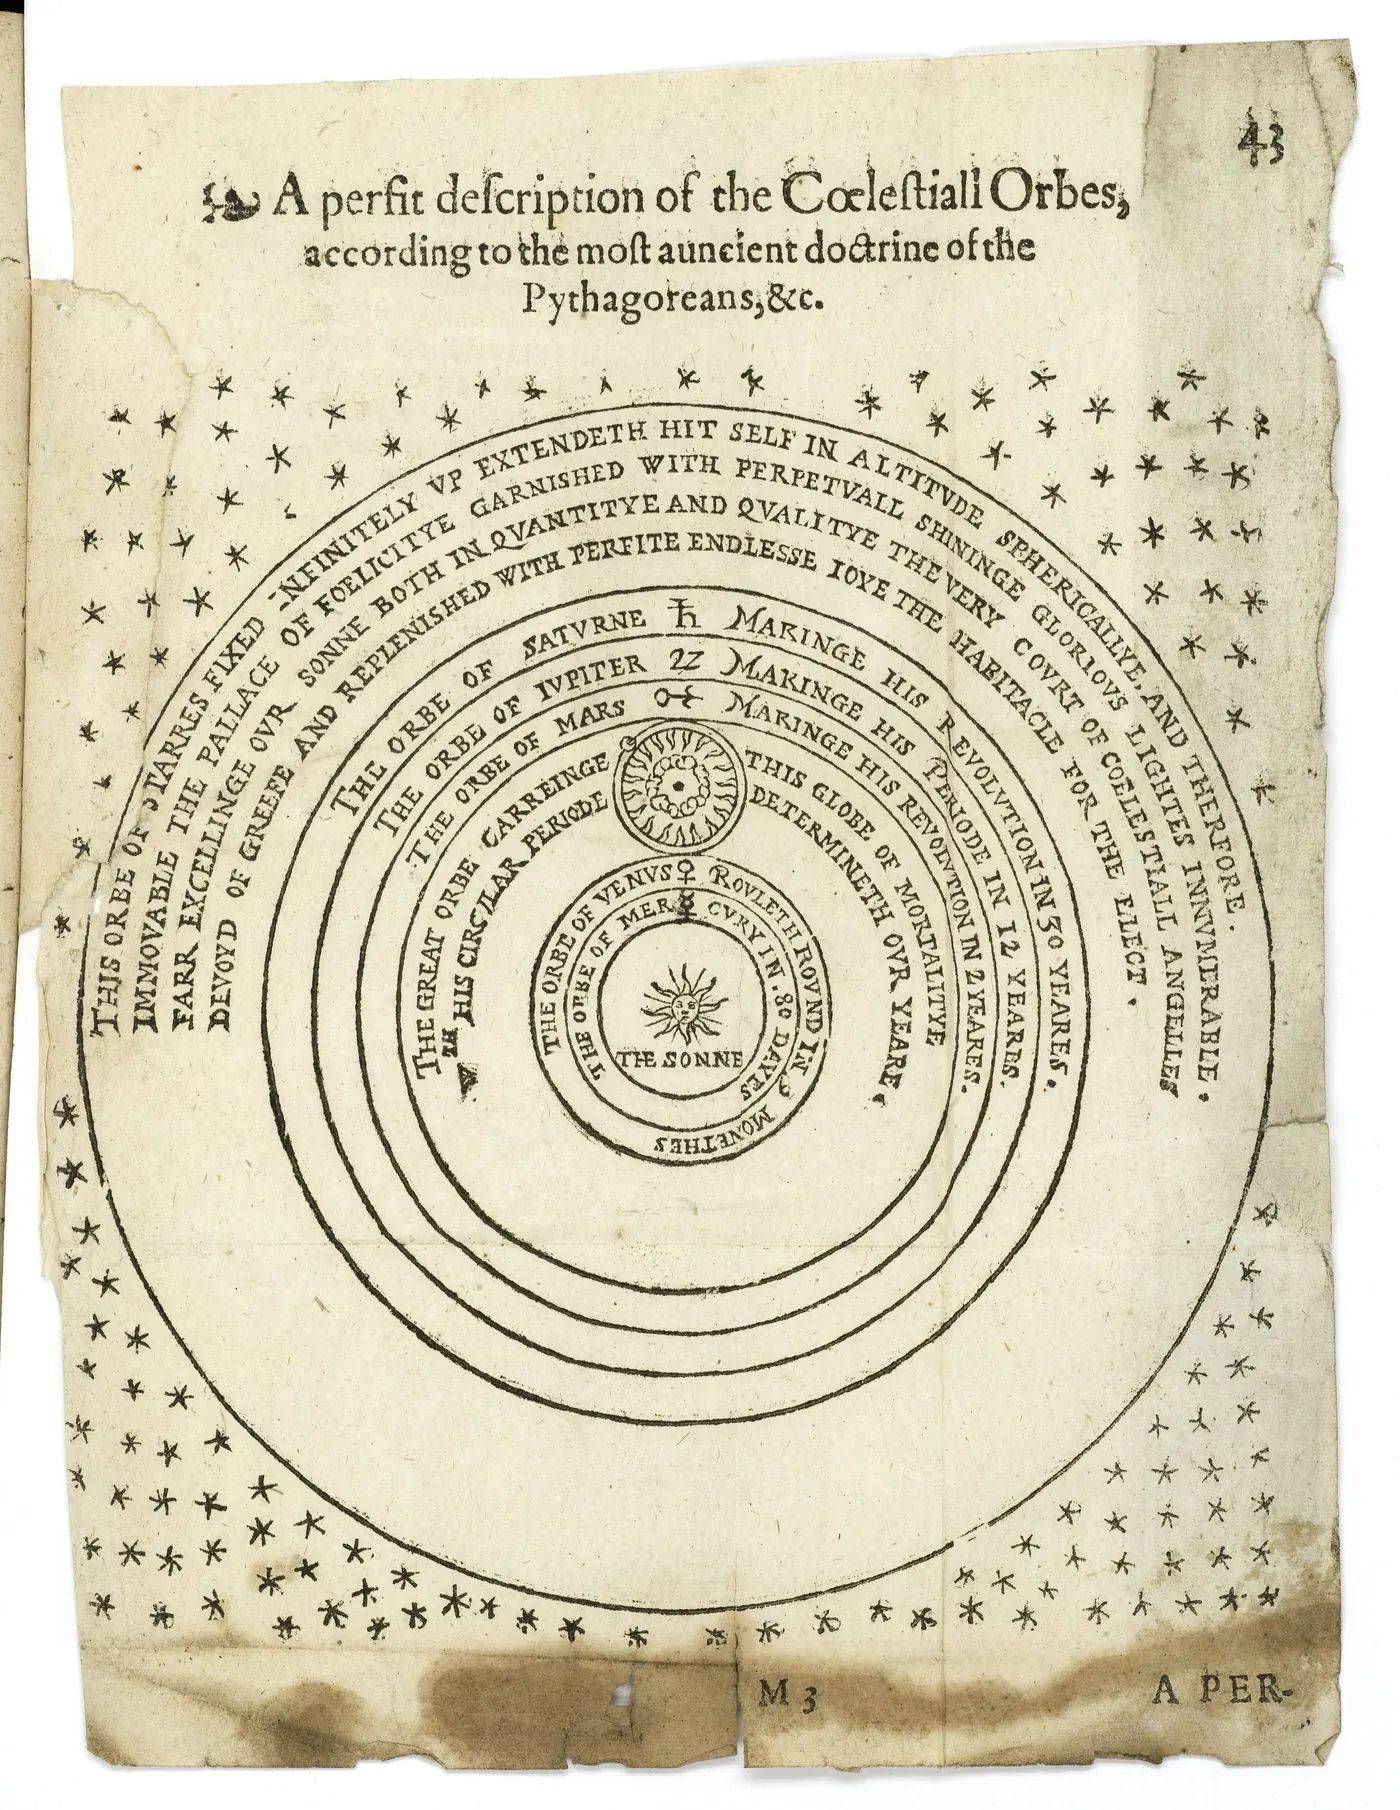 43
A perfit deſcription of the Cœleſtiall Orbes,
according to the moſt auncient doctrine of the
Pythagoreans, &c.
THIS ORBE OF STARRES FIXED INFINITELY VP EXTENDETH HIT SELF IN ALTITVDE SPHERICALLYE, AND THERFORE.
IMMOVABLE THE PALLACE OF FOELICITYE GARNISHED WITH PERPETVALL SHININGE GLORIOVS LIGHTES INNVMERABLE.
FARR EXCELLINGE OVR SONNE BOTH IN QVANTITYE AND QVALITYE THE VERY COVRT OF COELESTIALL ANGELLES
DEVOYD OF GREEFE AND REPLENISHED WITH PERFITE ENDLESSE IOYE THE HABITACLE FOR THE ELECT.
THE ORBE OF SATVRNE ♄ MAKINGE HIS REVOLVTION IN 30 YEARES.
THE ORBE OF IVPITER ♃ MAKINGE HIS PERIODE IN 12 YEARES.
THE ORBE OF MARS ♂ MAKINGE HIS REVOLVTION IN 2 YEARES.
THE GREAT ORBE CARREINGE THIS GLOBE OF MORTALITYE
HIS CIRCVLAR PERIODE DETERMINETH OVR YEARE.
THE ORBE OF VENVS ♀ ROVLETH ROVND IN 9 MONETHES
THE ORBE OF MER ☿ CVRY IN 80 DAYES
THE SONNE
M 3
A PER-